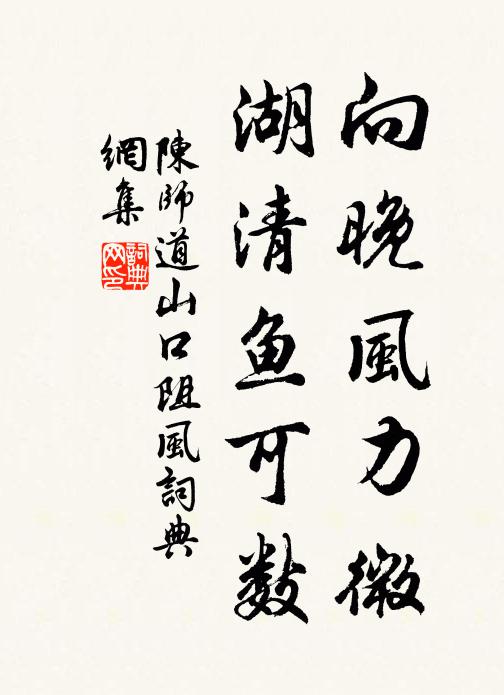 向晚風力微
湖清鱼可数
陳師道山口阻風詞典
網集
詞典
网印